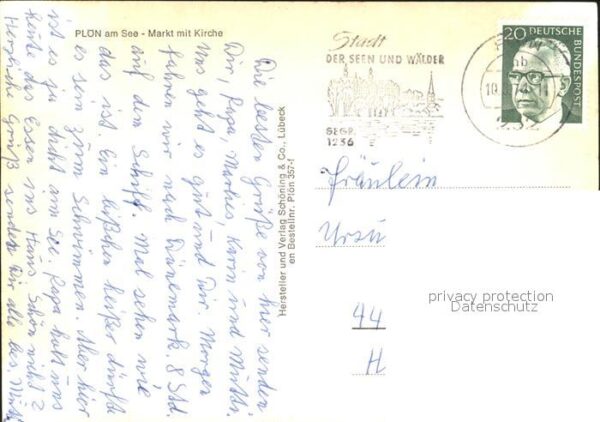 PLÖN am See - Markt mit Kirche
Die besten Grüße von hier senden
Dir, Papa, Marlies Karin und Mutti.
Uns geht es gut und Dir. Morgen
fahren wir nach Dänemark. 8 Std.
auf dem Schiff. Mal sehen wie
das ist. Ein bißchen heißer dürfte
es sein zum Schwimmen. Aber hier
ist es ja dicht am See. Papa holt uns
heute das Essen ins Haus. Schön nicht?
Herzliche Grüße senden Dir alle
Hersteller und Verlag Schöning & Co., Lübeck
en Bestellnr. Plön 357-f
Stadt
DER SEEN UND WÄLDER
SEGR.
1236
232
20 DEUTSCHE
BUNDESPOST
Fräulein
Ursu
44
H
privacy protection
Datenschutz